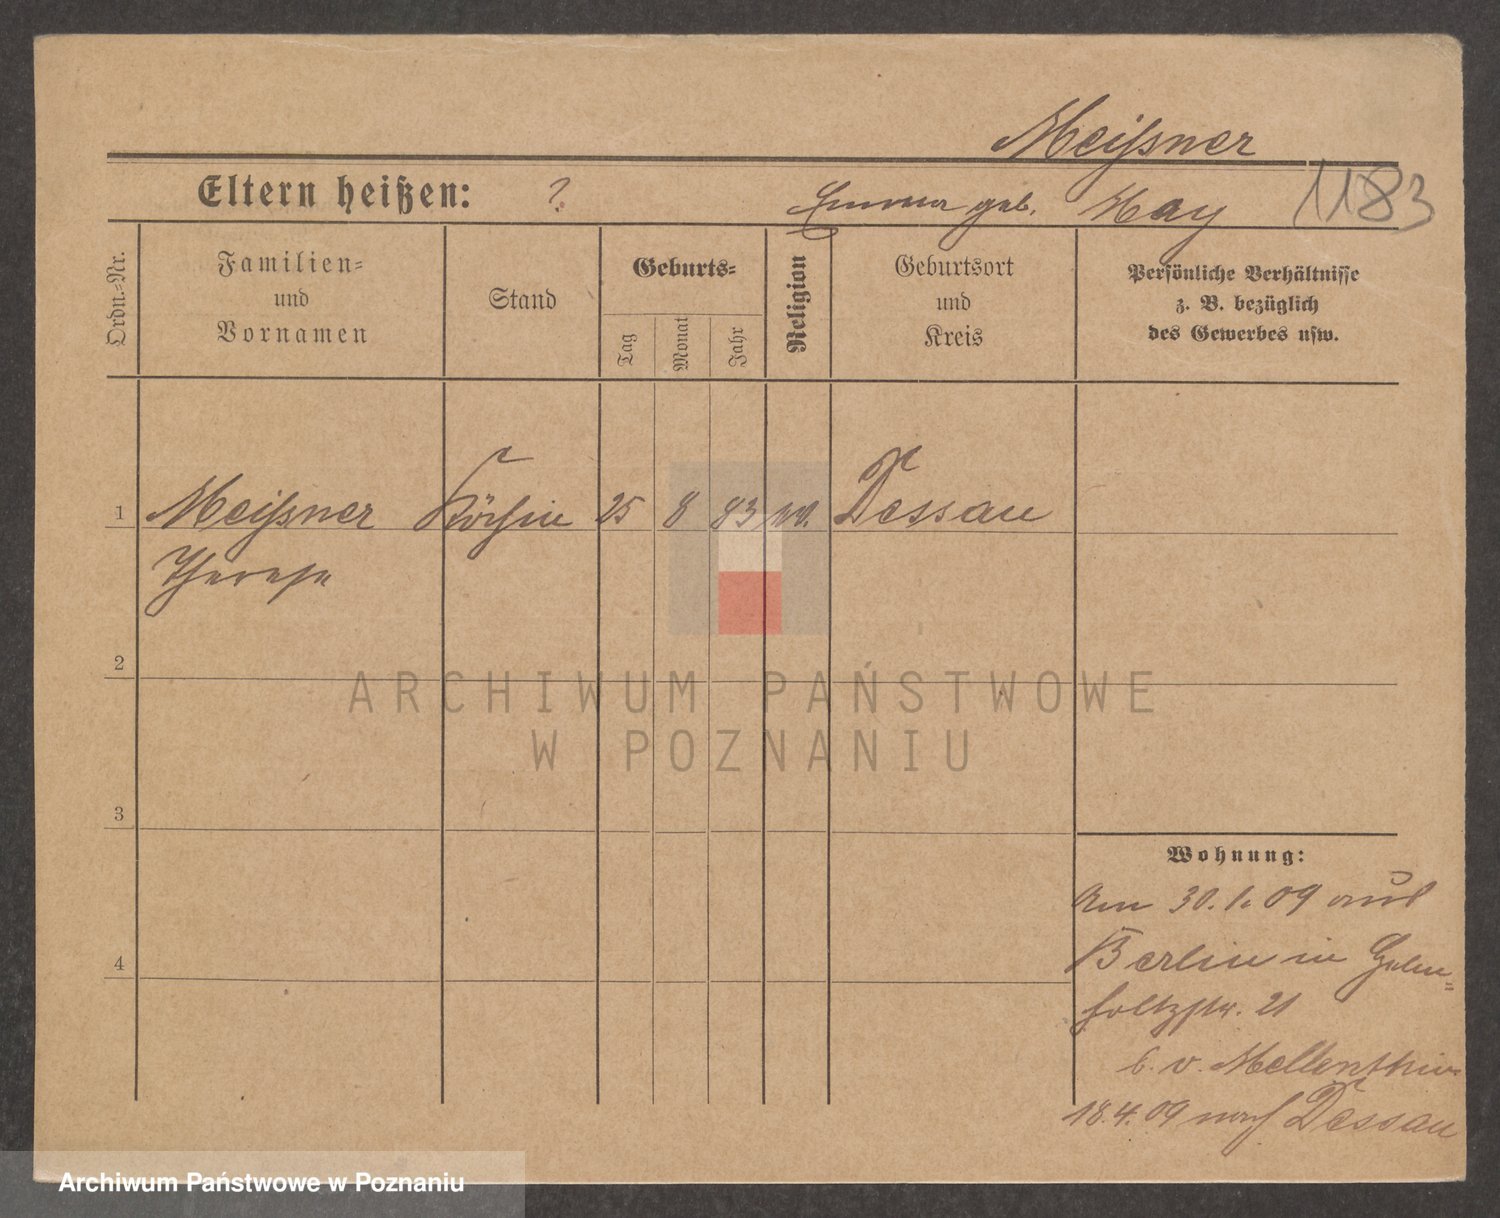 Meißner
Eltern heißen: ? Emma geb. May 1183
Ordn.-Nr.
Familien-
und
Vornamen
Stand
Geburts-
Tag
Monat
Jahr
Religion
Geburtsort
und
Kreis
Persönliche Verhältnisse
z. B. bezüglich
des Gewerbes usw.
1 Meißner Köchin 25 8 83 ev. Dessau
Therese
2
3
4
Wohnung:
Am 30.1.09 aus
Berlin in Helm-
holtzstr. 21
b. v. Mellenthin
18.4.09 nach Dessau
ARCHIWUM PAŃSTWOWE
W POZNANIU
Archiwum Państwowe w Poznaniu